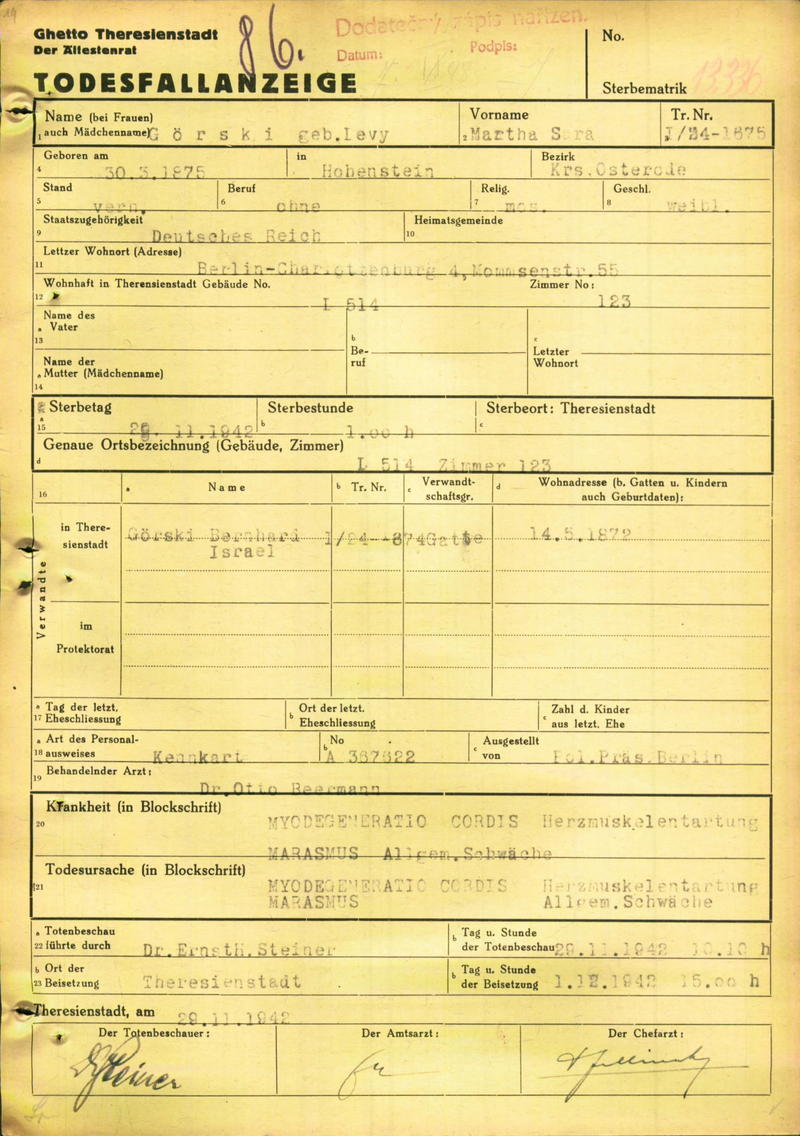 Ghetto Theresienstadt
Der Ältestenrat
86.
Dodatečný zápis nařízen.
Datum:
Podpis:
TODESFALLANZEIGE
No.
Sterbematrik 13336
Name (bei Frauen) Vorname Tr. Nr.
1 auch Mädchenname) Görski geb.Levy 2 Martha Sara I/24-1875
Geboren am in Bezirk
4 30.3.1875 Hohenstein Krs.Osterode
Stand Beruf Relig. Geschl.
5 verh. 6 ohne 7 mos. 8 weibl.
Staatszugehörigkeit Heimatsgemeinde
9 Deutsches Reich 10
Lettzer Wohnort (Adresse)
11 Berlin-Charlottenburg 4,Mommsenstr.55
Wohnhaft in Therensienstadt Gebäude No. Zimmer No:
12 L 514 123
Name des
a Vater
13
b
Be-
ruf
c
Letzter
Wohnort
Name der
a Mutter (Mädchenname)
14
Sterbetag Sterbestunde Sterbeort: Theresienstadt
a
15 29. 11.1942 b 1.00 h c
Genaue Ortsbezeichnung (Gebäude, Zimmer)
d L 514 Zimmer 123
16 a Name b Tr. Nr. c Verwandt-
schaftsgr. d Wohnadresse (b. Gatten u. Kindern
auch Geburtdaten):
Verwandte
in There-
sienstadt
Görski Bernhard I/24--874 Gatte 14.5.1872
Israel
im
Protektorat
a Tag der letzt. Ort der letzt. Zahl d. Kinder
17 Eheschliessung b Eheschliessung c aus letzt. Ehe
a Art des Personal- No Ausgestellt
18 ausweises Kennkart b A 367622 c von Pol.Präs.Berlin
Behandelnder Arzt:
19 Dr.Otto Beermann
Krankheit (in Blockschrift)
20 MYODEGENERATIO CORDIS Herzmuskelentartung
MARASMUS Allgem.Schwäche
Todesursache (in Blockschrift)
21 MYODEGENERATIO CORDIS Herzmuskelentartung
MARASMUS Allgem.Schwäche
a Totenbeschau b Tag u. Stunde
22 führte durch Dr.Ernst H.Steiner der Totenbeschau 29.11.1942 10.10 h
b Ort der b Tag u. Stunde
23 Beisetzung Theresienstadt der Beisetzung 1.12.1942 15.00 h
Theresienstadt, am 29.11.1942
Der Totenbeschauer: Der Amtsarzt: Der Chefarzt:
Steiner